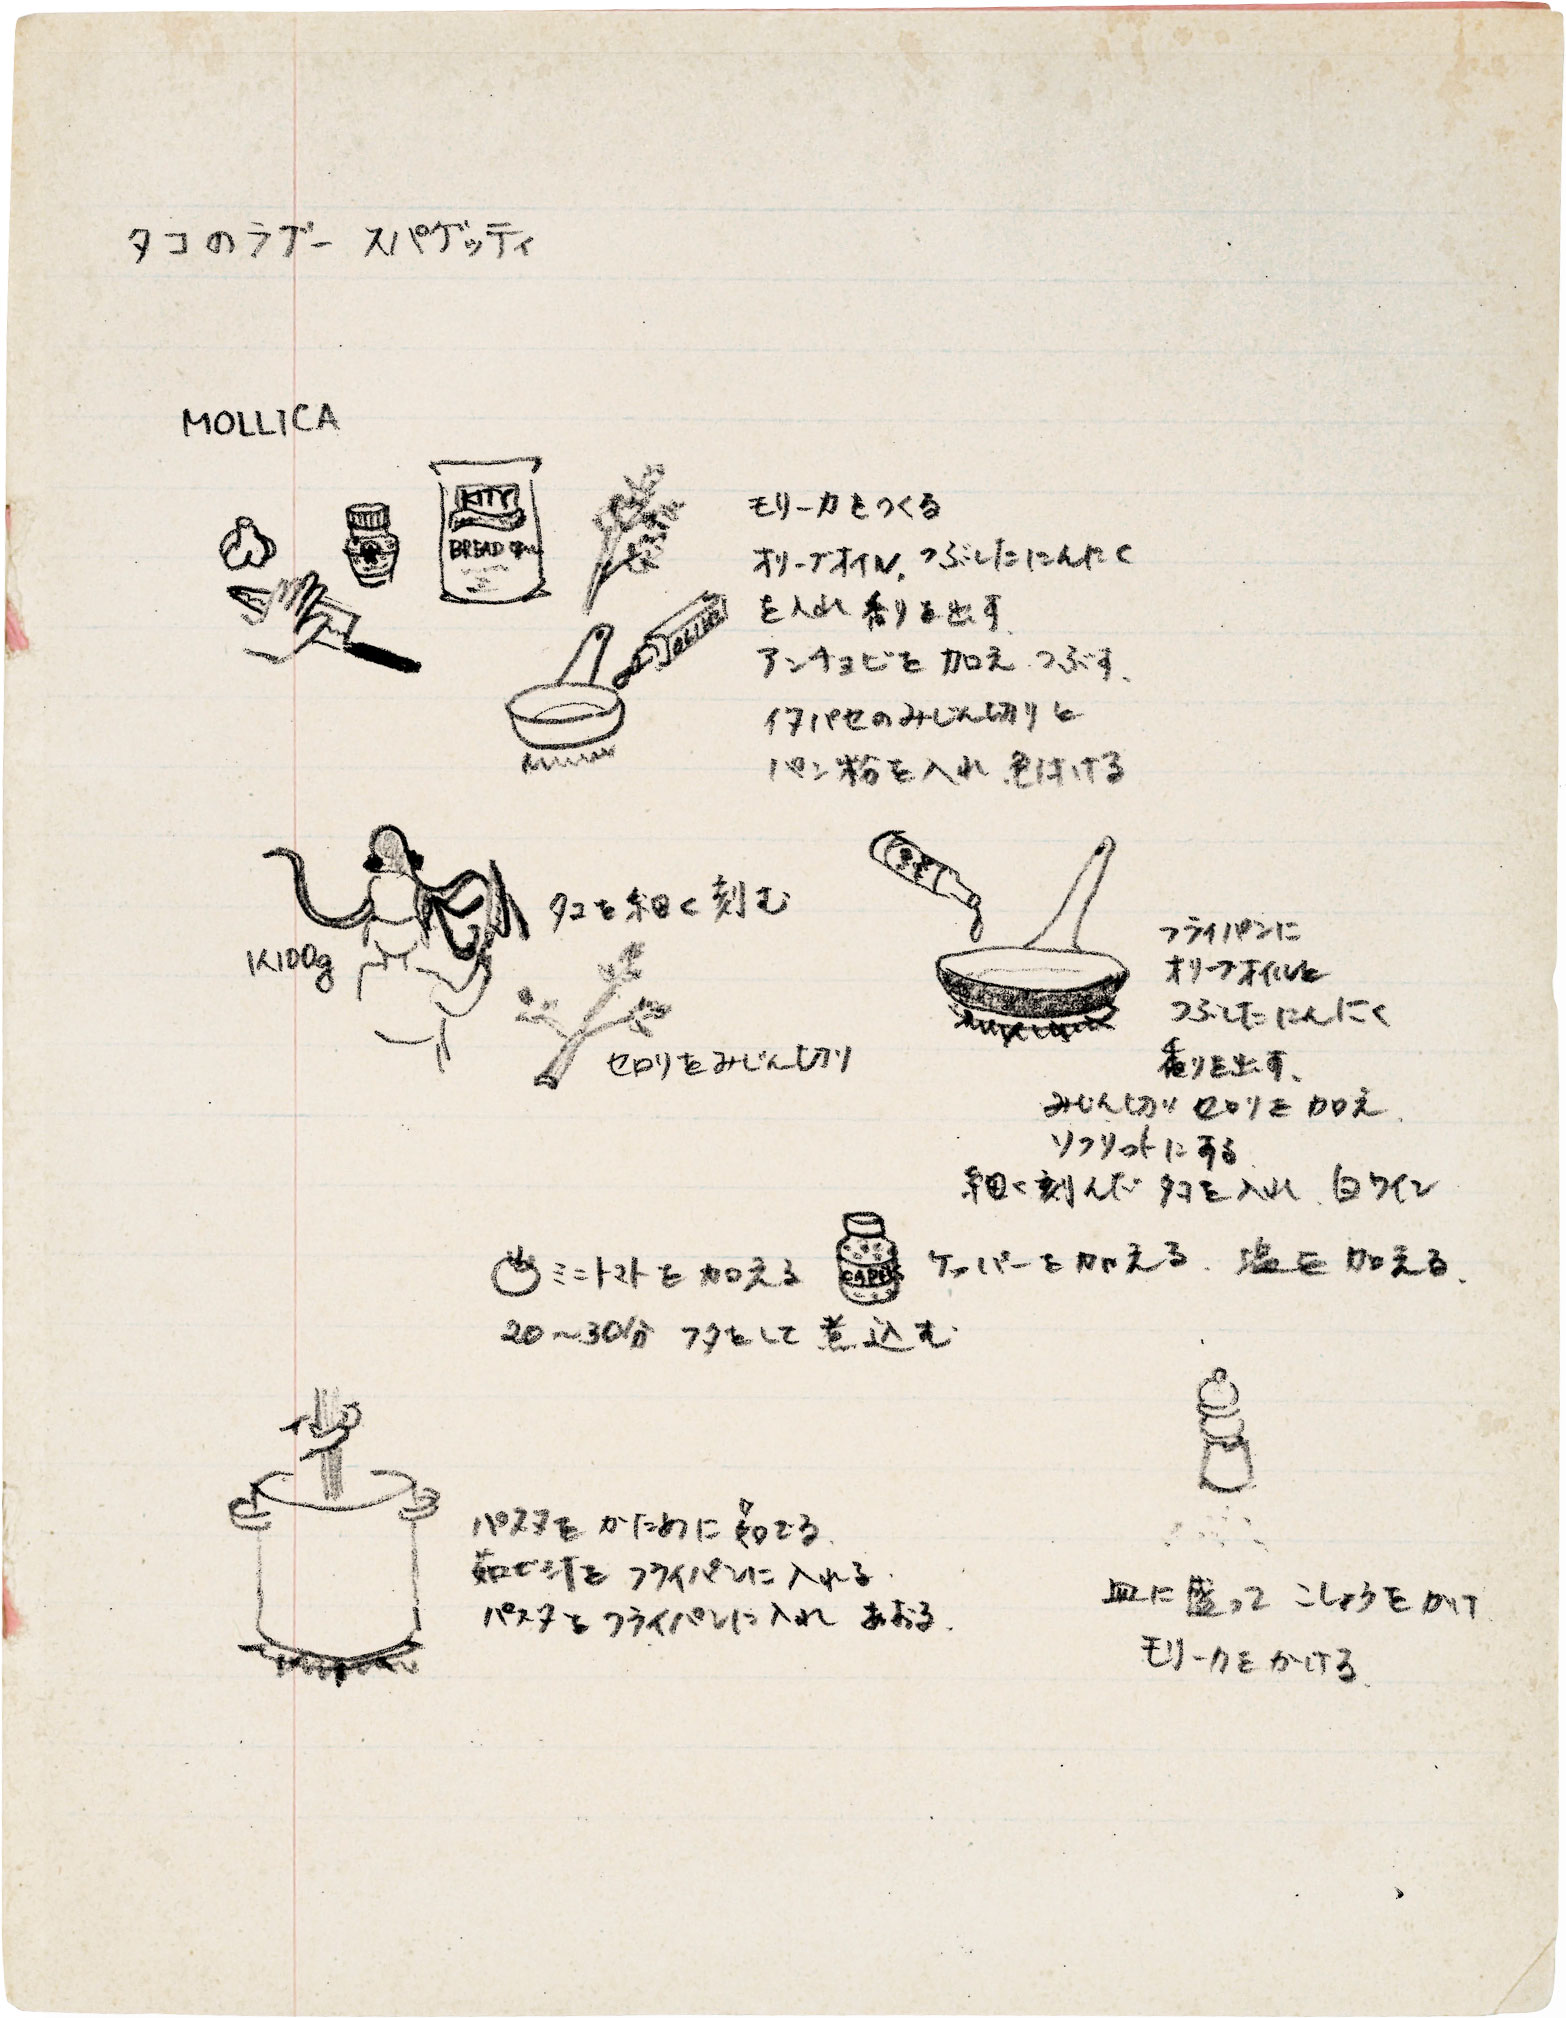 タコのラグー スパゲッティ
MOLLICA
KITY
BREAD
OLIO
モリーカをつくる
オリーブオイル、つぶしたにんにく
を入れ 香りを出す
アンチョビを 加え つぶす、
イタパセのみじん切りと
パン粉を入れ 色付ける
タコを細く刻む
K100g
セロリをみじん切り
フライパンに
オリーブオイルと
つぶしたにんにく
香りを出す、
みじん切りセロリを加え、
ソフリットにする
細く刻んだ タコを入れ、白ワイン
ミニトマトを加える
CAPERS
ケッパーを加える、塩を加える、
20〜30分 フタをして煮込む
パスタを かために 茹でる、
茹で汁を フライパンに入れる、
パスタを フライパンに入れ あおる、
皿に盛って こしょうをかけ
モリーカを かける、